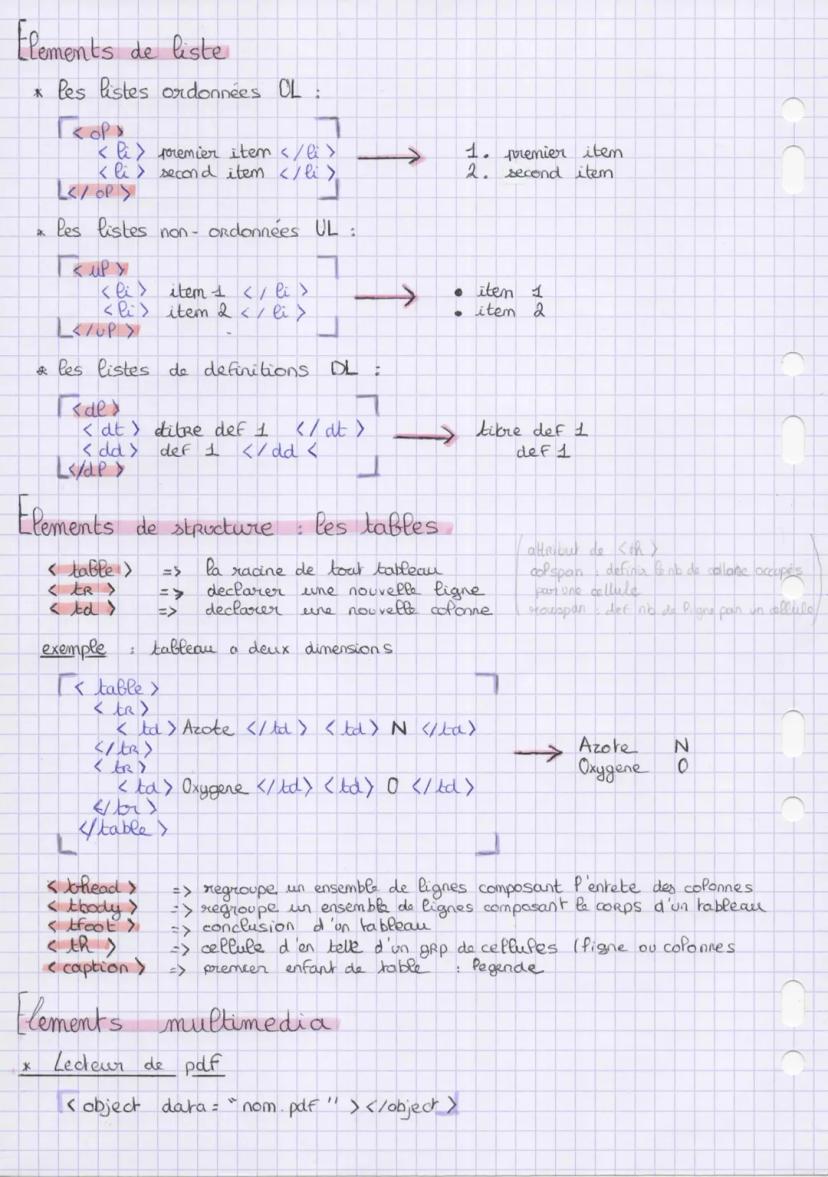 Elements de liste
* les listes ordonnées OL :
<ol>
<li> premier item </li>
<li> second item </li>
</ol>
→
1. premier item
2. second item
* les listes non-ordonnées UL :
<ul>
<li> item 1 </li>
<li> item 2 </li>
</ul>
→
• item 1
• item 2
* les listes de definitions DL :
<dl>
<dt> titre def 1 </dt>
<dd> def 1 </dd <
</dl>
→
titre def 1
def 1
Elements de structure : les tables
<table> => la racine de tout tableau
<tR> => declarer une nouvelle ligne
<td> => declarer une nouvelle colonne
attribut de <th>
colspan : definir le nb de collone occupés
par une cellule
rowspan : def nb de ligne par un cellule
exemple : tableau a deux dimensions
<table>
<tR>
<td> Azote </td> <td> N </td>
</tR>
<tR>
<td> Oxygene </td> <td> O </td>
</tr>
</table>
→
Azote N
Oxygene O
<thead> => regroupe un ensemble de lignes composant l'entete des colonnes
<tbody> => regroupe un ensemble de lignes composant le corps d'un tableau
<tfoot> => conclusion d'un tableau
<th> => cellule d'en tete d'un grp de cellules (ligne ou colonnes
<caption> => premier enfant de table : legende
Elements multimedia
* Lecteur de pdf
<object data = "nom.pdf"></object>